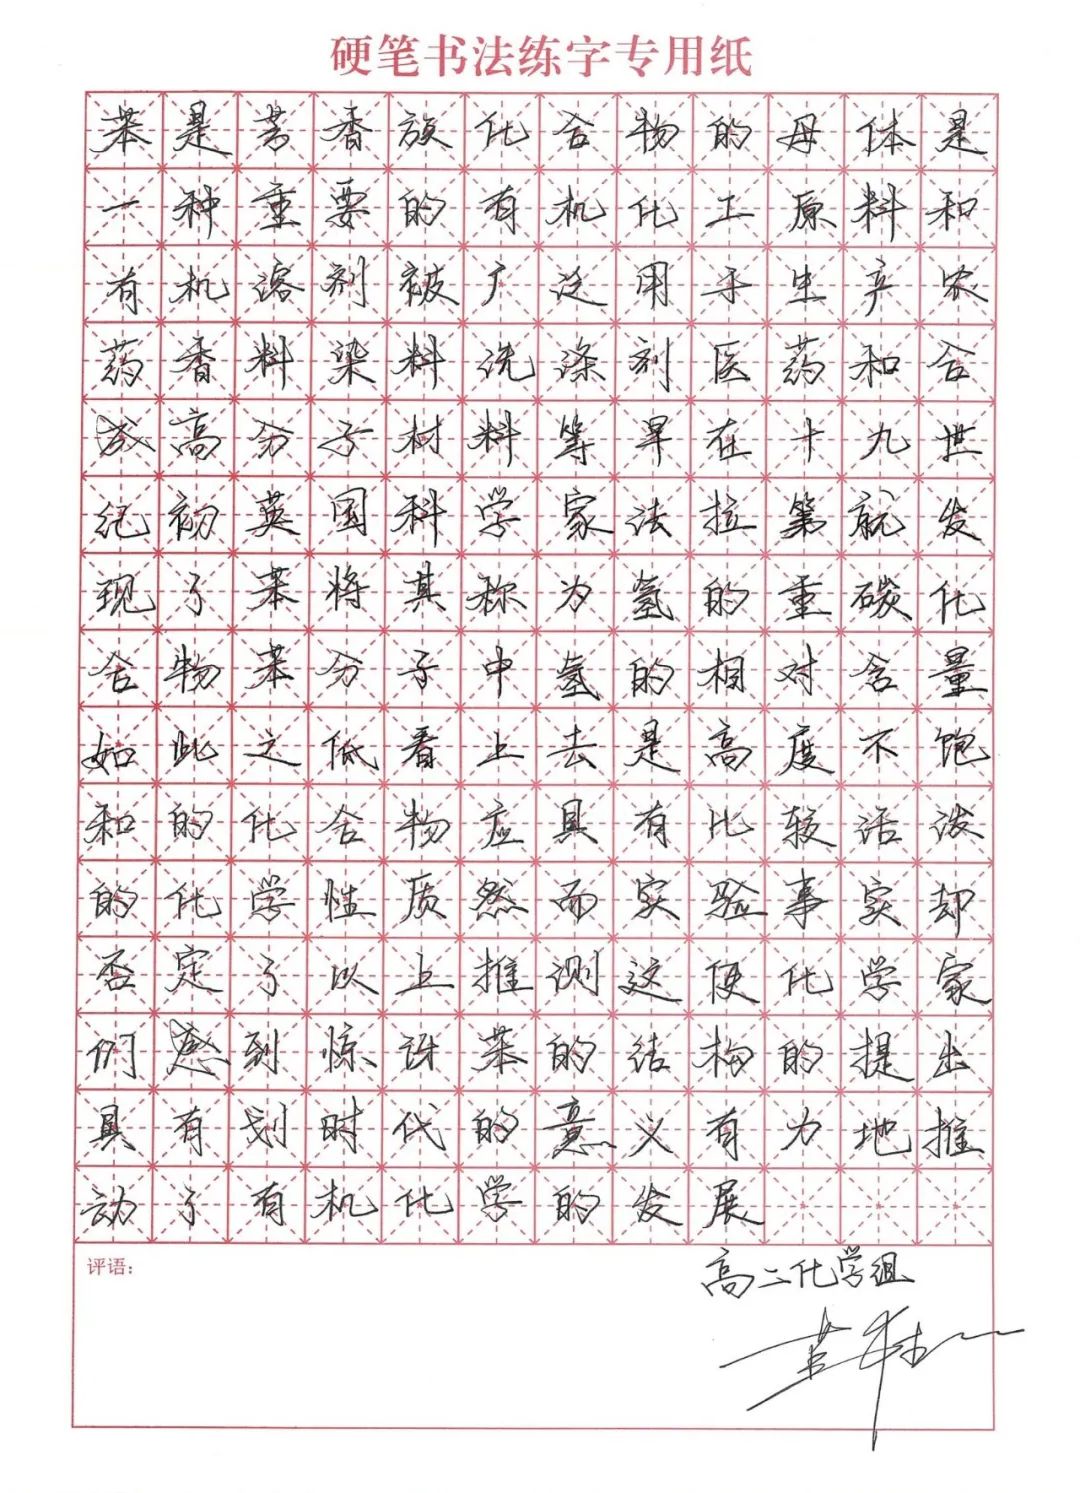 硬笔书法练字专用纸
苯是芳香族化合物的母体是
一种重要的有机化工原料和
有机溶剂被广泛用于生产农
药香料染料洗涤剂医药和合
成高分子材料等早在十九世
纪初英国科学家法拉第就发
现了苯将其称为氢的重碳化
合物苯分子中氢的相对含量
如此之低看上去是高度不饱
和的化合物应具有比较活泼
的化学性质然而实验事实却
否定了以上推测这使化学家
们感到惊讶苯的结构的提出
具有划时代的意义有力地推
动了有机化学的发展
评语：
高二化学组